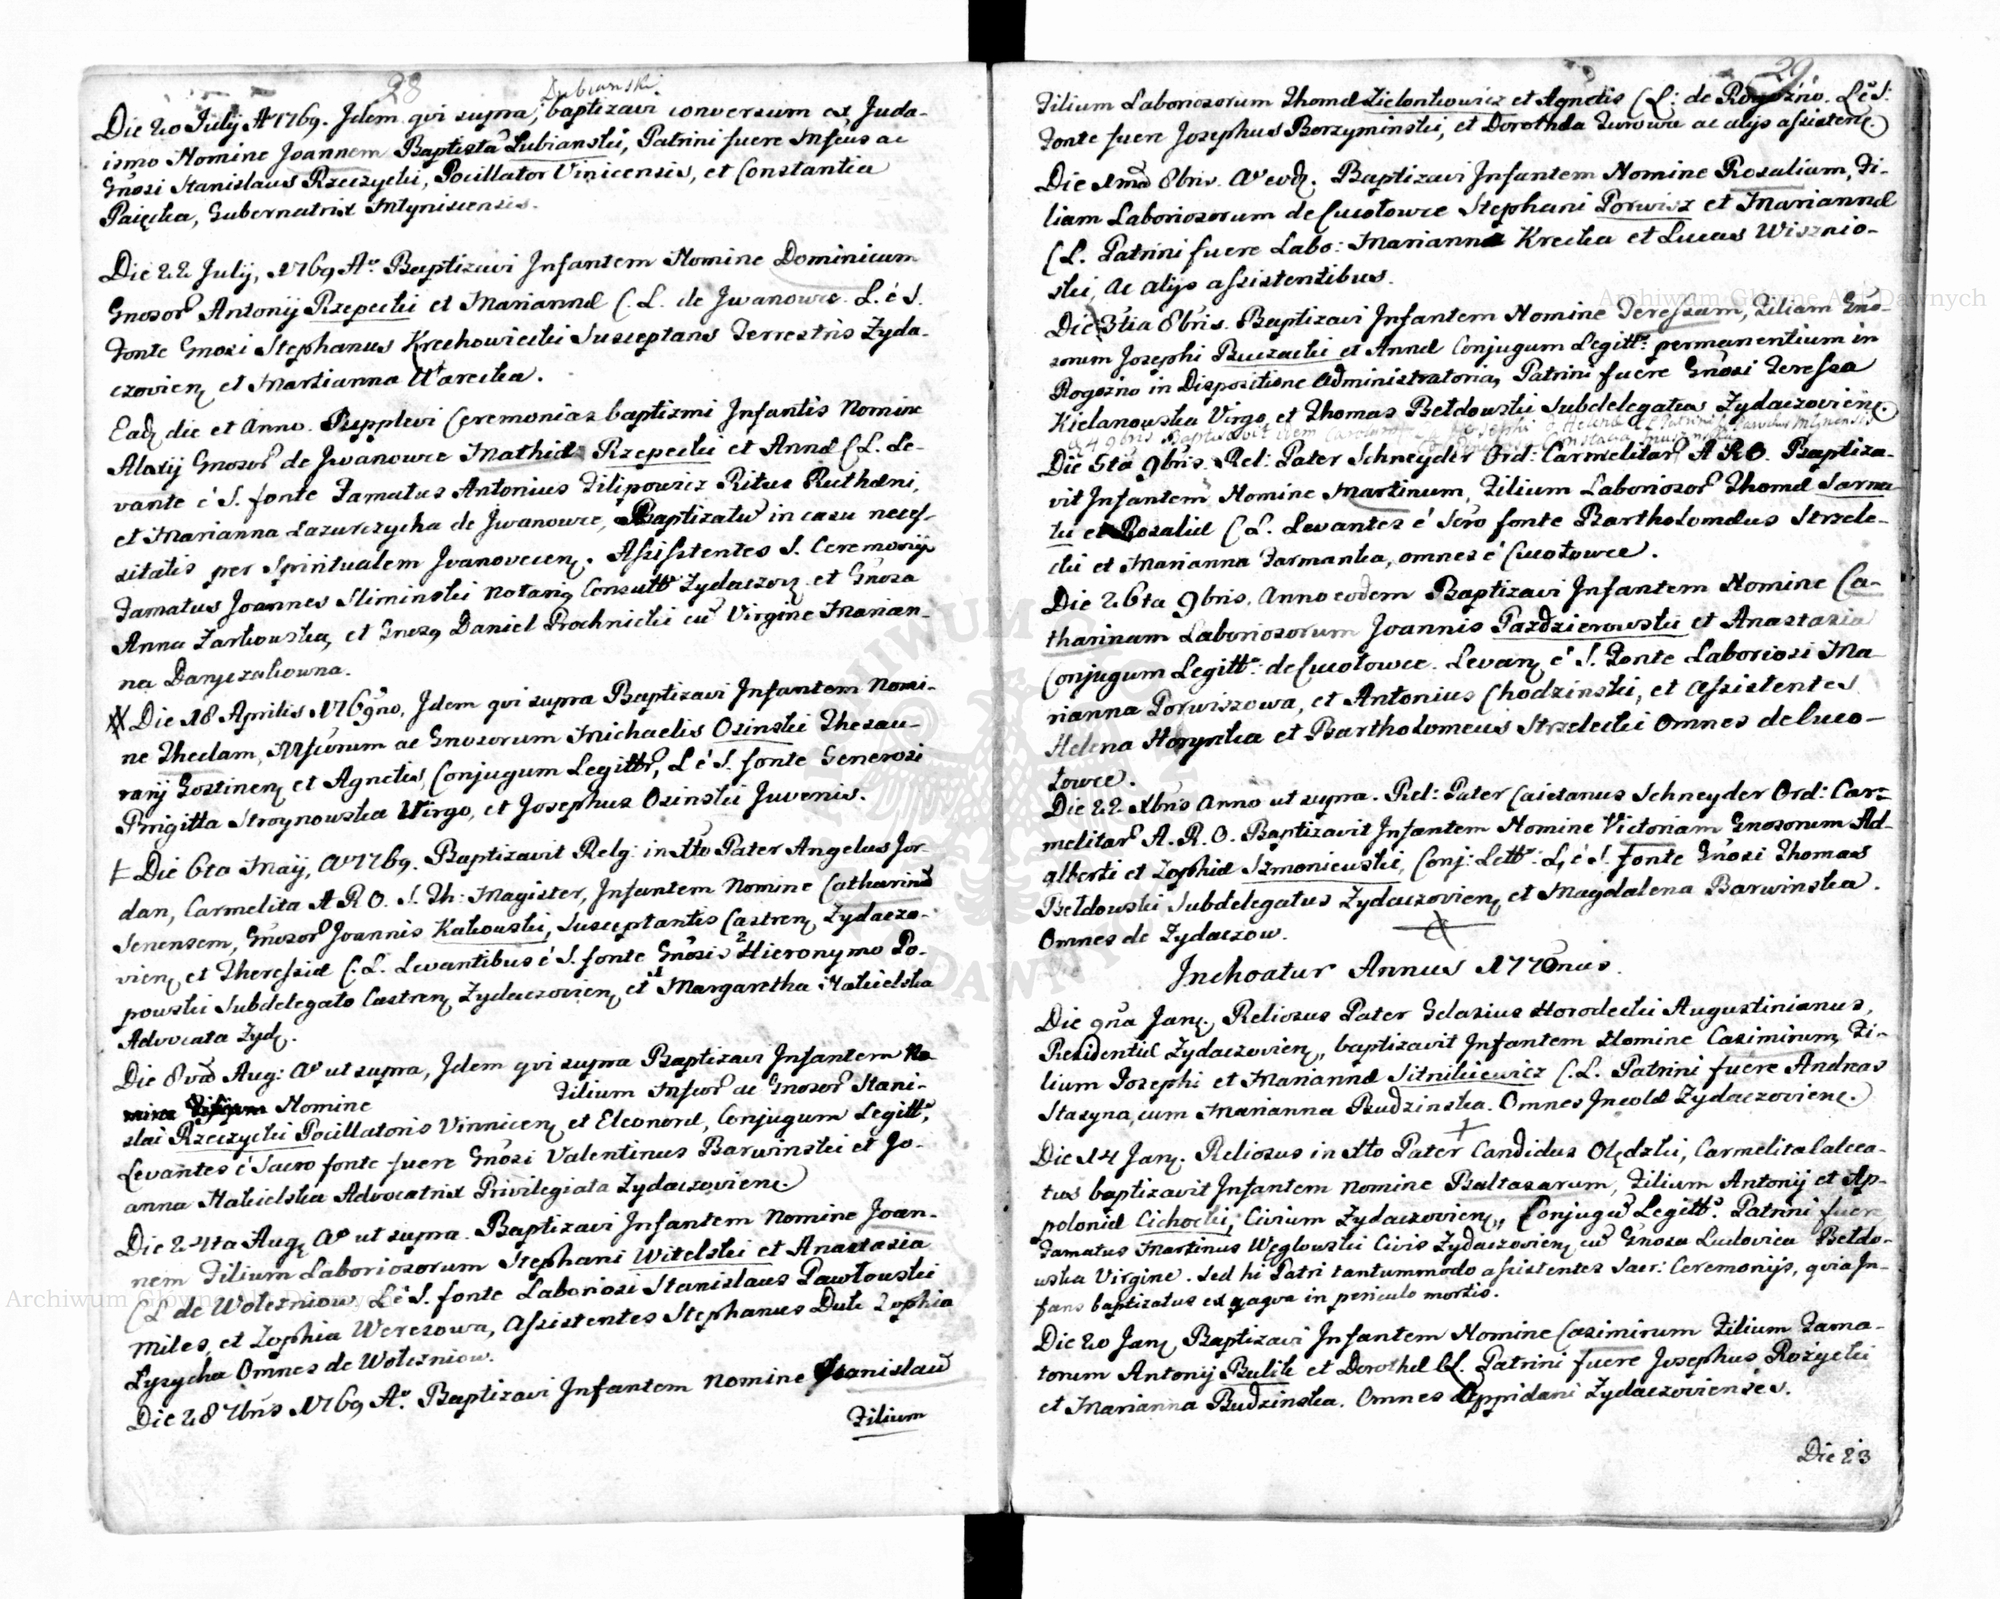 28
Dubianski.
Die 20 July A° 1769. Jdem qvi supra, baptizavi conversum ex Juda-
ismo Nomine Joannem Baptistã Lubianski, Patrini fuere Mfcus ac
Gnosi Stanislaus Rzeczycki, Pocillator Vinicensis, et Constantia
Paięcka, Gubernatrix Mlyniscensis.
Die 22 July, 1769 A°. Baptizavi Jnfantem Nomine Dominicum
Gnosor̃ Antonij Rzepecki et Mariannæ C. L. de Jwanowce. L. é S.
Fonte Gnosi Stephanus Krechowiecki Susceptans Terrestris Zyda-
czovien et Martianna Warecka.
Ead die et Anno. Supplevi Ceremonias baptismi Jnfantis Nomine
Alexij Gnosor̃ de Jwanowce Mathiæ Rzepecki et Annæ C L. Le-
vante é S. fonte Famatus Antonius Filipowicz Ritus Ruthæni,
et Marianna Lazurczycha de Jwanowce, Baptizatũ in casu neces-
sitatis per Spiritualem Jvanovecen. Assistentes S. Ceremonijs
Famatus Joannes Sliminski Notari9 Consultt Zydaczov et Gnosa
Anna Zarkowska, et Gnos9 Daniel Prochnicki cũ Virgine Marian-
na Danczakowna.
Die 18 Aprilis 1769no, Jdem qvi supra Baptizavi Jnfantem Nomi-
ne Theclam, Mfcorum ac Gnosorum Michaelis Osinski Thesau-
rarij Gostinen et Agnetis, Conjugum Legittr̃, L é S. fonte Generosi
Brigitta Stroynowska Virgo, et Josephus Osinski Juvenis.
Die 6ta Maij, A° 1769. Baptizavit Relg: in Xto Pater Angelus Jor-
dan, Carmelita A R O. S. Th: Magister, Jnfantem Nomine Catharinã
Senensem, Gnosor̃ Joannis Kakowski, Susceptantis Castren Zydaczo-
vien et Theressiæ C. L. Levantibus é S. fonte Gnosis Hieronymo Po-
powski Subdelegato Castren Zydaczovien et Margaretha Hakielska
Advocata Zyd.
Die 8vã Aug: A° ut supra, Jdem qvi supra Baptizavi Jnfantem No-
mine Nomine Filium Mfcor̃ ac Gnosor̃ Stani-
slai Rzeczycki Pocillatoris Vinnicen et Eleonoræ, Conjugum Legitt,
Levantes é Sacro fonte fuere Gnosi Valentinus Barwinski et Jo-
anna Hakielska Advocatrix Privilegiata Zydaczovien.
Die 24ta Aug A° ut supra. Baptizavi Jnfantem Nomine Joan-
nem Filium Laboriosorum Stephani Witelski et Anastasia
C L de Wolczniow. L é S. fonte Laboriosi Stanislaus Pawłowski
Miles, et Zophia Werezowa, Assistentes Stephanus Duk Zophia
Lysycha Omnes de Wolczniow.
Die 28 7bris 1769 A°. Baptizavi Jnfantem Nomine Stanislaũ
Filium
29
Filium Laboriosorum Thomæ Zielonkowicz et Agnetis C L: de Rogozno. L é S:
Fonte fuere Josephus Borzyminski, et Dorothea Gurowa ac alijs assisten.
Die 1mã 8bris. A° eod. Baptizavi Jnfantem Nomine Rosaliam, Fi-
liam Laboriosorum de Cucołowce Stephani Porwisz et Mariannæ
C L. Patrini fuere Labo: Marianna Krecka et Lucas Wisznio-
ski, ac alijs assistentibus.
Die 3tia 8bris. Baptizavi Jnfantem Nomine Teressam, Filiam Gno-
sorum Josephi Buczacki et Annæ Conjugum Legitt: permanentium in
Rogozno in Dispositione administratoria, Patrini fuere Gnosi Teressa
Kielanowska Virgo, et Thomas Bełdowski Subdelegatus Zydaczovien.
Die 5ta 9bris. Rel: Pater Schneyder Ord: Carmelitar̃ A R O. Baptiza-
vit Jnfantem Nomine Martinum, Filium Laboriosor̃ Thomæ Sarna-
ki et Rosaliæ C L. Levantes é Scro fonte Bartholomæus Strzele-
cki et Marianna Farmanka, omnes é Cucołowce.
Die 26ta 9bris. Anno eodem Baptizavi Jnfantem Nomine Ca-
tharinam Laboriosorum Joannis Pazdzierowski et Anastasia
Conjugum Legitt: de Cucołowce. Levan é S. Fonte Laboriosi Ma-
rianna Porwiszowa, et Antonius Chodzinski, et Assistentes
Helena Horynka et Bartholomeus Strzelecki Omnes de Cuco-
łowce.
Die 22 Xbris Anno ut supra. Rel: Pater Caietanus Schneyder Ord: Car-
melitar̃ A. R. O. Baptizavit Jnfantem Nomine Victoriam Gnosorum Ad-
alberti et Zophiæ Szmoniewski, Conj: Lett: L. é S. fonte Gnosi Thomas
Bełdowski Subdelegatus Zydaczovien et Magdalena Barwinska.
Omnes de Zydaczow.
Jnchoatur Annus 1770nus.
Die 9na Jan. Reliosus Pater Gelasius Horodecki Augustinianus,
Residentiæ Zydaczovien, baptizavit Jnfantem Nomine Casimirum, Fi-
lium Josephi et Mariannæ Sitnikiewicz C. L. Patrini fuere Andreas
Staszyna, cum Marianna Budzinska. Omnes Jncolæ Zydaczovien.
Die 14 Jan. Reliosus in Xto Pater Candidus Olędzki, Carmelita Calcea-
tus baptizavit Jnfantem Nomine Baltasarum, Filium Antonij et Ap-
poloniæ Cichocki, Civium Zydaczovien, Conjugũ Legitt: Patrini fuere
Famatus Martinus Węglowski Civis Zydaczovien cũ Gnosa Ludovica Bełdo-
wska Virgine. Sed hi Patri tantummodo assistentes Sacr: Ceremonijs, qvia Jn-
fans baptizatus ex aqva in periculo mortis.
Die 20 Jan Baptizavi Jnfantem Nomine Casimirum Filium Fama-
torum Antonij Bulik et Dorotheæ C L. Patrini fuere Josephus Rożycki
et Marianna Budzinska. Omnes Oppidani Zydaczovienses.
Die 23
Archiwum Główne Akt Dawnych
Archiwum Główne Akt Dawnych